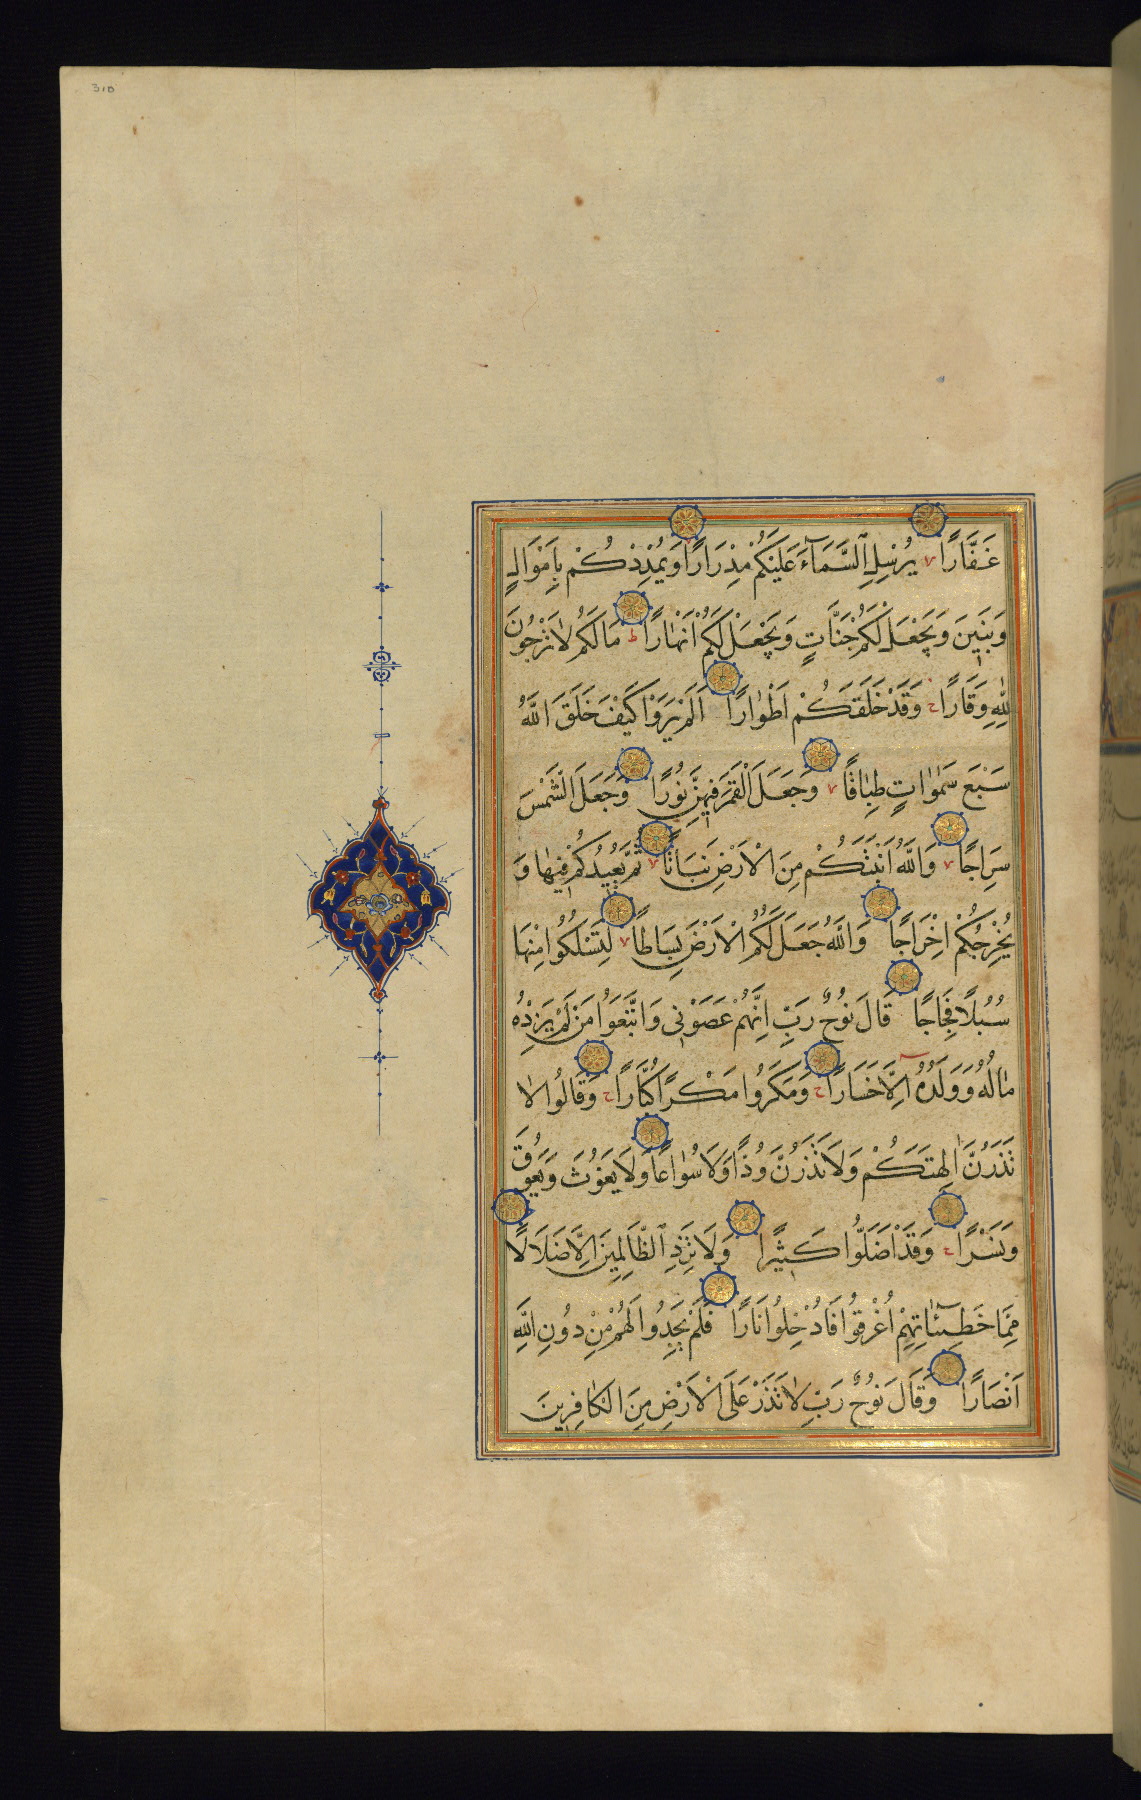 310
غَفَّارًا ۷ يُرْسِلِ السَّمَآءَ عَلَيْكُمْ مِدْرَارًا وَيُمْدِدْكُمْ بِاَمْوَالٍ
وَبَنِينَ وَيَجْعَلْ لَكُمْ جَنَّاتٍ وَيَجْعَلْ لَكُمْ اَنْهَارًا ط مَالَكُمْ لَا تَرْجُونَ
لِلّٰهِ وَقَارًا ج وَقَدْ خَلَقَكُمْ اَطْوَارًا اَلَمْ تَرَوْا كَيْفَ خَلَقَ اللّٰهُ
سَبْعَ سَمٰوَاتٍ طِبَاقًا ۷ وَجَعَلَ الْقَمَرَ فِيهِنَّ نُورًا وَجَعَلَ الشَّمْسَ
سِرَاجًا ۷ وَاللّٰهُ اَنْبَتَكُمْ مِنَ الْاَرْضِ نَبَاتًا ۷ ثُمَّ يُعِيدُكُمْ فِيهَا وَ
يُخْرِجُكُمْ اِخْرَاجًا وَاللّٰهُ جَعَلَ لَكُمُ الْاَرْضَ بِسَاطًا ۷ لِتَسْلُكُوا مِنْهَا
سُبُلًا فِجَاجًا قَالَ نُوحٌ رَبِّ اِنَّهُمْ عَصَوْنِى وَاتَّبَعُوا مَنْ لَمْ يَزِدْهُ
مَالُهُ وَوَلَدُهُ اِلَّا خَسَارًا ج وَمَكَرُوا مَكْرًا كُبَّارًا ج وَقَالُوا لَا
تَذَرُنَّ اٰلِهَتَكُمْ وَلَا تَذَرُنَّ وُدًّا وَلَا سُوَاعًا وَلَا يَغُوثَ وَيَعُوقَ
وَنَسْرًا ج وَقَدْ اَضَلُّوا كَثِيرًا وَلَا تَزِدِ الظَّالِمِينَ اِلَّا ضَلَالًا
مِمَّا خَطِيـئَاتِهِمْ اُغْرِقُوا فَاُدْخِلُوا نَارًا فَلَمْ يَجِدُوا لَهُمْ مِنْ دُونِ اللّٰهِ
اَنْصَارًا وَقَالَ نُوحٌ رَبِّ لَا تَذَرْ عَلَى الْاَرْضِ مِنَ الْكَافِرِينَ